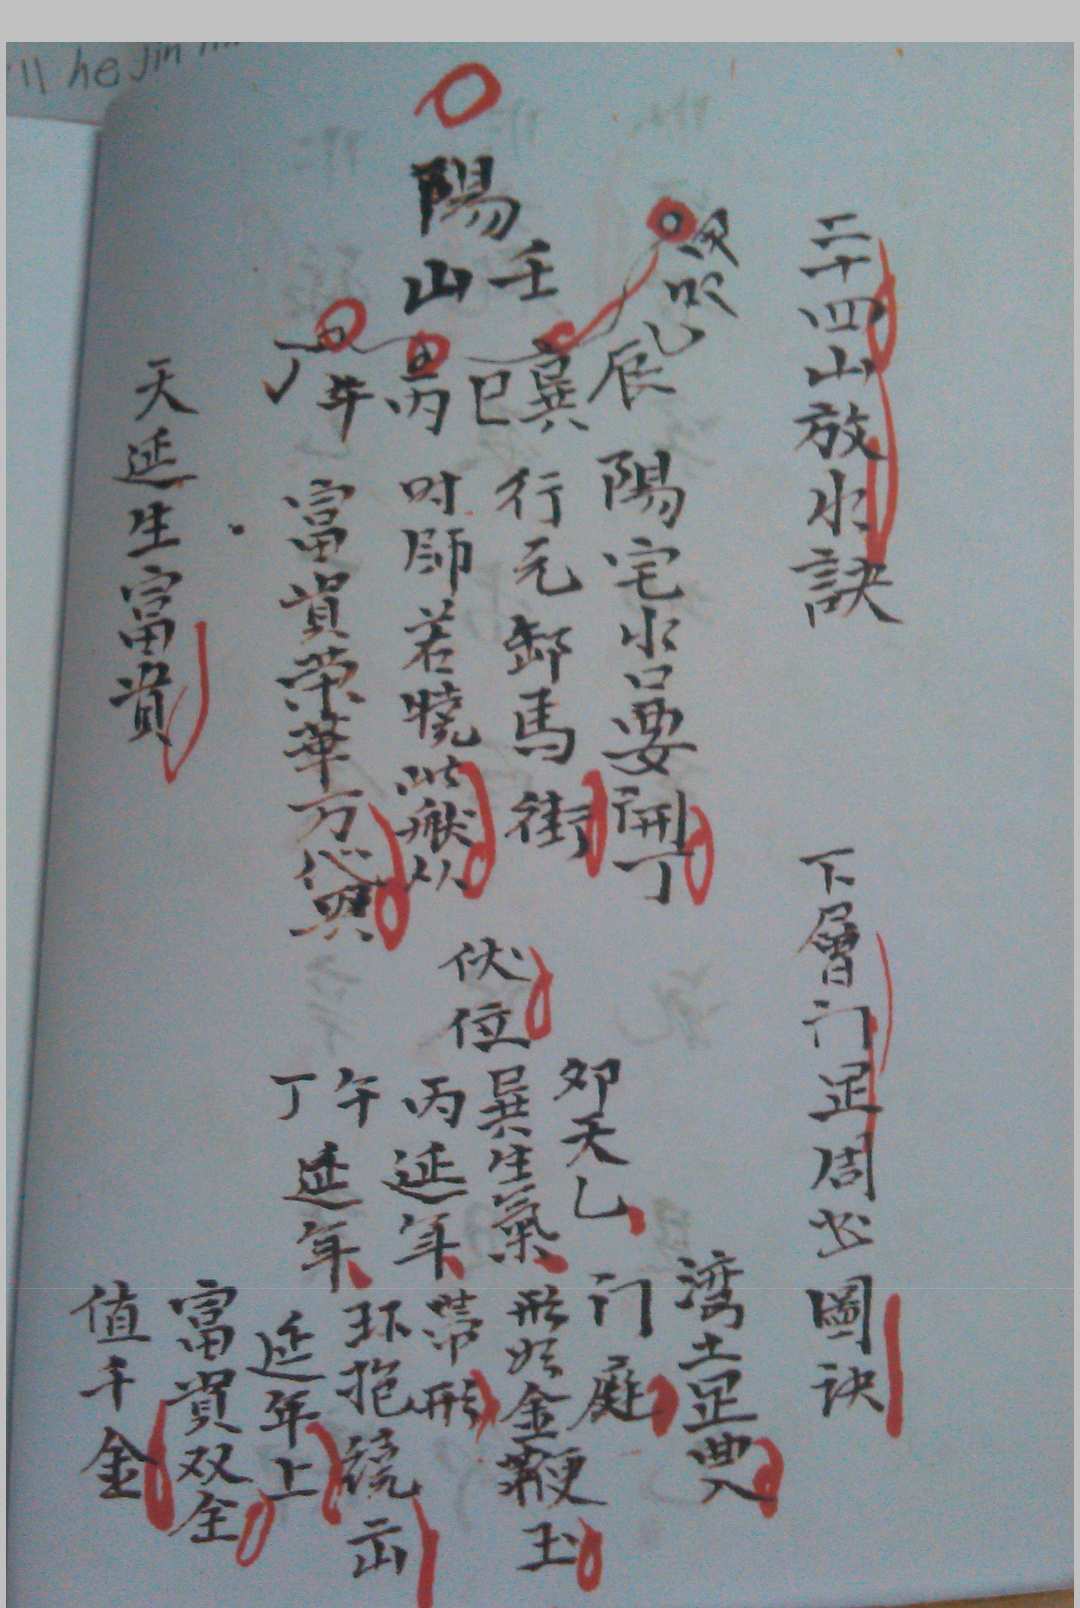 he jin
二十四山放水訣
陽山
壬
辰
巽
巳
丙
午
丁
陽宅水口要開丁
行元卸馬街
时師若曉從
富貴荣華万代興
天延生富貴
下層门足周圖訣
伏位
天乙
巽生氣
丙延年
午延年
丁
湾土足
门庭
形如金鞭玉
带形
环抱繞
延年上
富貴双全
值千金